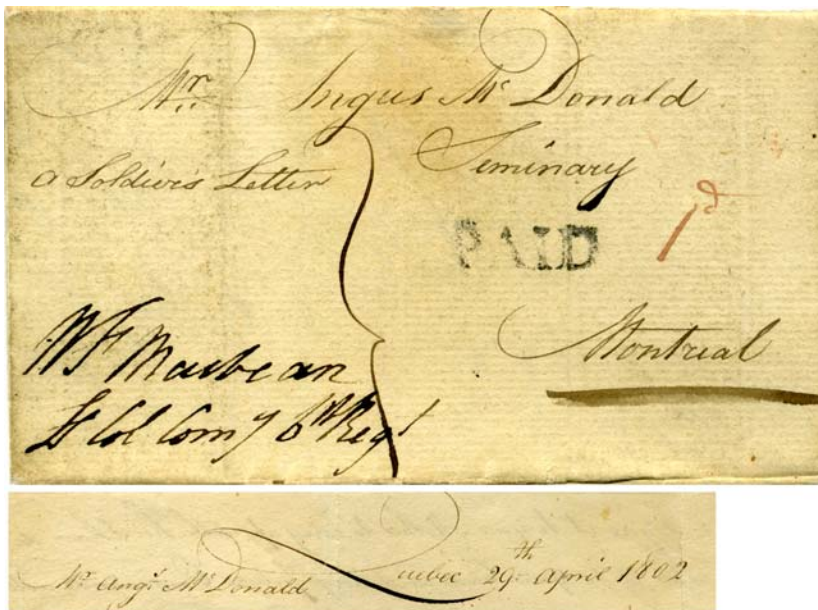 Mr. Angus Mc Donald
a Soldier's Letter
Seminary
PAID 1d
Montreal
W F Macbean
Lt Col Com 6th Regt
Mr. Angs. Mc Donald Quebec 29th April 1802